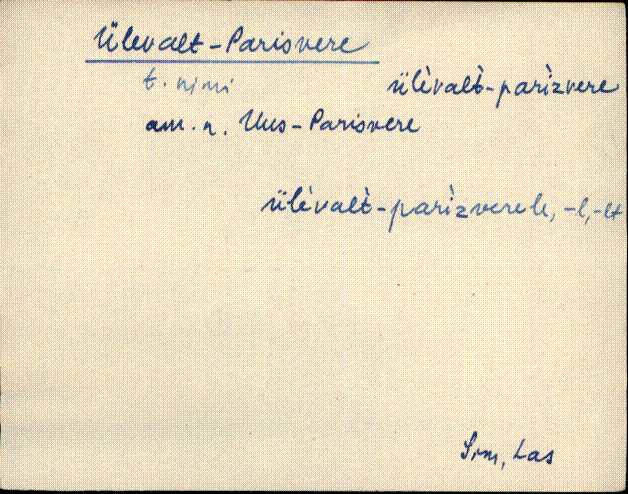 Ülevalt-Parisvere
t. nimi ülèvalt̀-parìzvere
am. n. Uus-Parisvere
ülèvalt̀-parìzverele, -l, -lt
Sim, Las